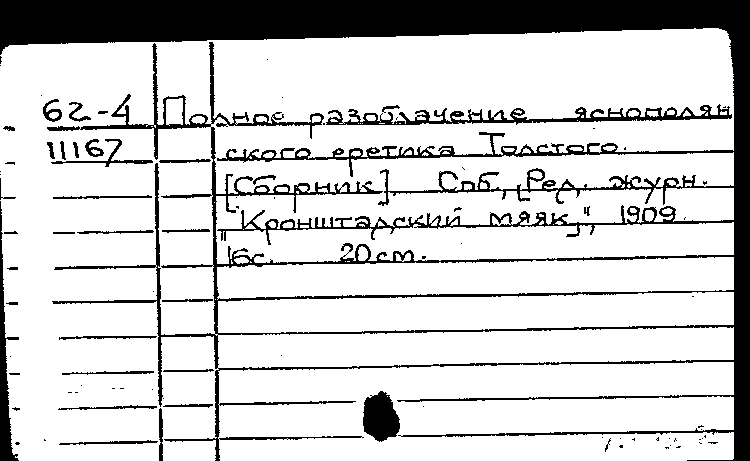 62-4 Полное разоблачение яснополян
11167 ского еретика Толстого.
[Сборник]. Спб., [Ред. журн.
"Кронштадский маяк"], 1909
16с. 20см.